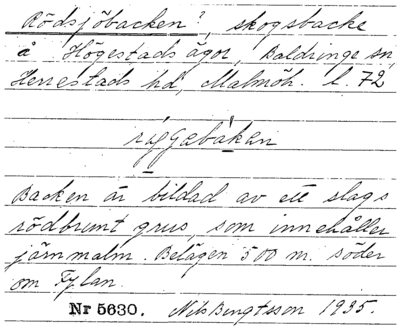 Rödsjöbacken?, skogsbacke
å Högestads ägor, Baldringe sn,
Herrestads hd, Malmöh. l. 72
Backen är bildad av ett slags
rödbrunt grus, som innehåller
järnmalm. Belägen 500 m. söder
om Fylan.
Nr 5630. Nils Bengtsson 1935.